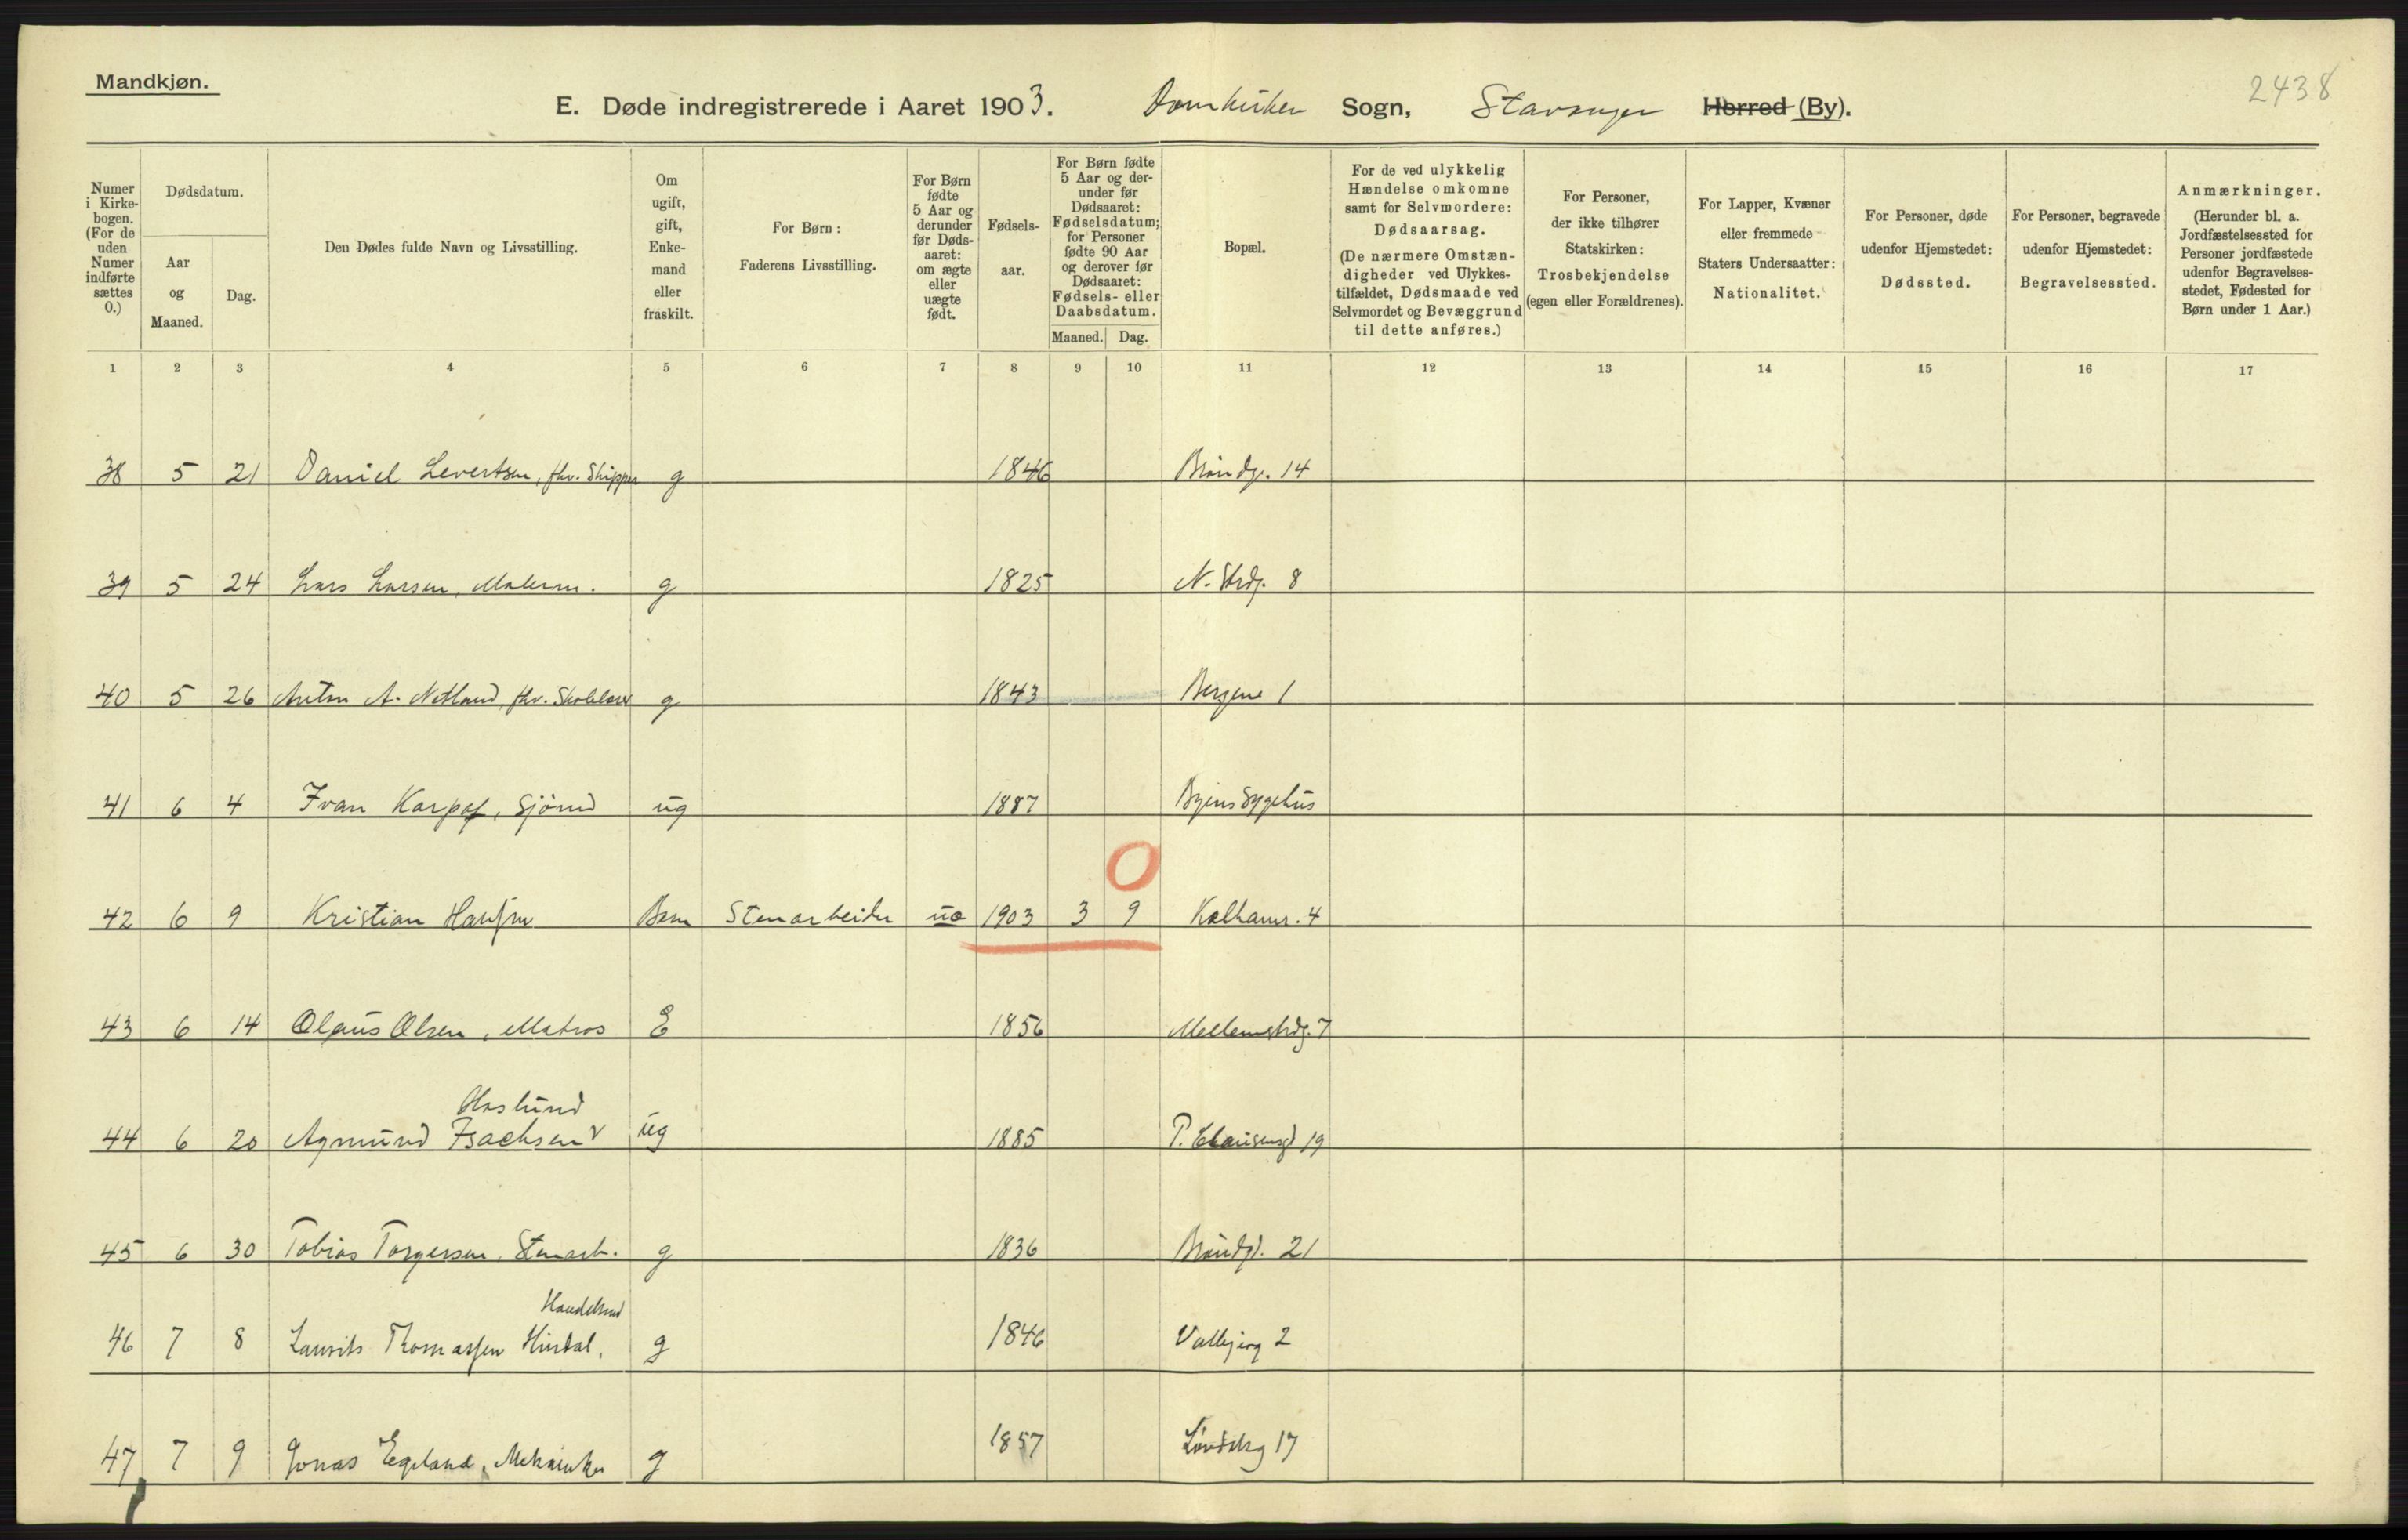 Mandkjøn.
2438
E. Døde indregistrerede i Aaret 1903. Domkirken Sogn, Stavanger Herred (By).
Numer i Kirkebogen. (For de uden Numer indførte sættes 0.)
Dødsdatum.
Aar og Maaned.
Dag.
Den Dødes fulde Navn og Livsstilling.
Om ugift, gift, Enkemand eller fraskilt.
For Børn: Faderens Livsstilling.
For Børn fødte 5 Aar og derunder før Dødsaaret: om ægte eller uægte født.
Fødselsaar.
For Børn fødte 5 Aar og derunder før Dødsaaret: Fødselsdatum; for Personer fødte 90 Aar og derover før Dødsaaret: Fødsels- eller Daabsdatum.
Maaned. Dag.
Bopæl.
For de ved ulykkelig Hændelse omkomne samt for Selvmordere: Dødsaarsag. (De nærmere Omstændigheder ved Ulykkestilfældet, Dødsmaade ved Selvmordet og Bevæggrund til dette anføres.)
For Personer, der ikke tilhører Statskirken: Trosbekjendelse (egen eller Forældrenes).
For Lapper, Kvæner eller fremmede Staters Undersaatter: Nationalitet.
For Personer, døde udenfor Hjemstedet: Dødssted.
For Personer, begravede udenfor Hjemstedet: Begravelsessted.
Anmærkninger. (Herunder bl. a. Jordfæstelsessted for Personer jordfæstede udenfor Begravelsesstedet, Fødested for Børn under 1 Aar.)
1 2 3 4 5 6 7 8 9 10 11 12 13 14 15 16 17
38 5 21 Daniel Levertsen, fhv. Skipper g 1846 14
39 5 24 Lars Larsen, Malerm. g 1825 N. Strdg. 8
40 5 26 Anton A. Netland, fhv. g 1843 1
41 6 4 Ivan Karpof, Sjømd ug 1887 Byens Sygehus
0
42 6 9 Kristian Hansen Barn Stenarbeider uæ 1903 3 9 Kalhamr. 4
43 6 14 Olaus Olsen, Matros E 1856 Mellemstrdg. 7
Haslund
44 6 20 Agmund Isachsen v ug 1885 P. Clausensgd 19
45 6 30 Tobias Torgersen, Stenarb. g 1836 21
Handelsmd
46 7 8 Laurits Thomassen g 1846 Valbjerg 2
47 7 9 Jonas Egeland, Mekaniker g 1857 17